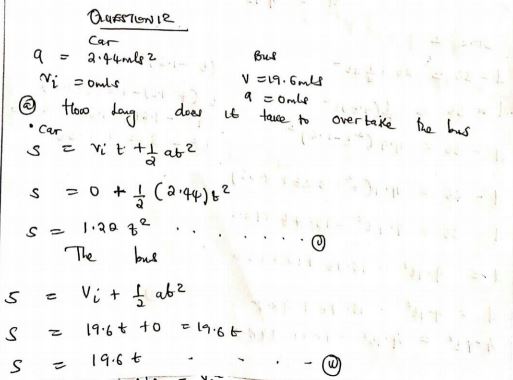 QUESTION 12
Car
a = 2.44m/s2 Bus
Vi = 0m/s V = 19.6m/s
a = 0m/s
(a) How long does it take to overtake the bus
• Car
S = Vi t + 1/2 at2
S = 0 + 1/2 (2.44)t2
S = 1.22 t2 . . . . . . . . (i)
The bus
S = Vi + 1/2 at2
S = 19.6t + 0 = 19.6t
S = 19.6t - - . - (ii)